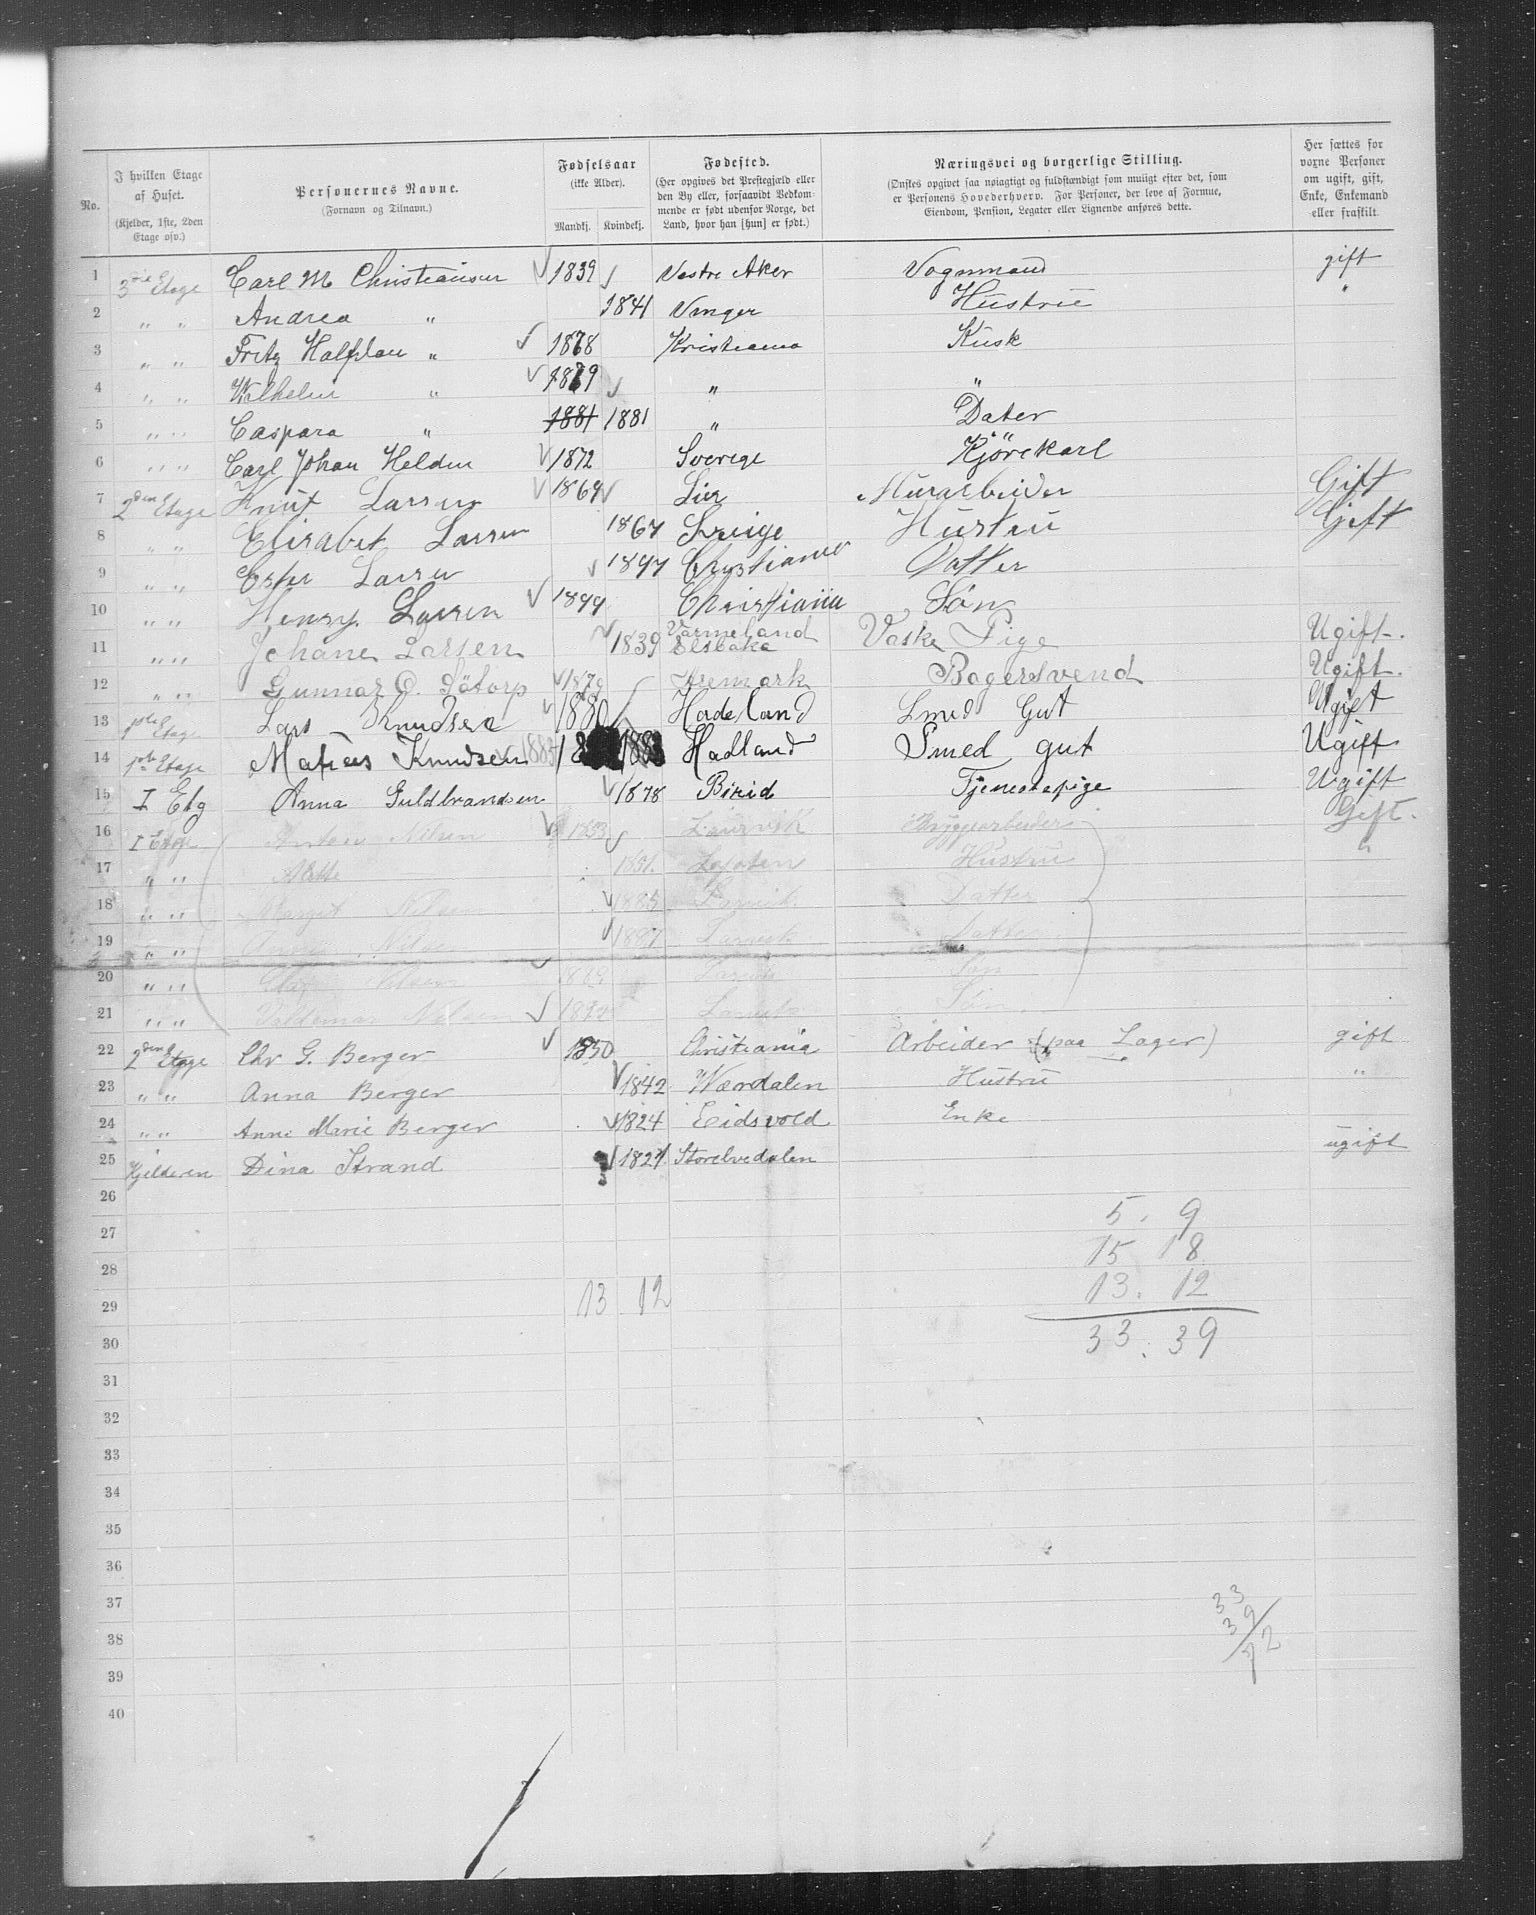 No.
I hvilken Etage af Huset.
(Kjelder, 1ste, 2den Etage osv.)
Personernes Navne.
(Fornavn og Tilnavn.)
Fødselsaar
(ikke Alder).
Mandkj. Kvindekj.
Fødested.
(Her opgives det Prestegjæld eller den By eller, forsaavidt Vedkommende er født udenfor Norge, det Land, hvor han [hun] er født.)
Næringsvei og borgerlige Stilling.
(Ønskes opgivet saa nøiagtigt og fuldstændigt som muligt efter det, som er Personens Hovederhverv. For Personer, der leve af Formue, Eiendom, Pension, Legater eller Lignende anføres dette.
Her sættes for voxne Personer om ugift, gift, Enke, Enkemand eller fraskilt.
1 3die Etage Carl M Christiansen 1839 Vestre Aker Vognmand gift
2 " " Andrea " 1841 Vinger Hustrue "
3 " " Fritz Halfdan " 1878 Kristiania Kusk
4 " " Wilhelm " 1879 " "
5 " " Caspara " 1881 1881 " Dater
6 " " Carl Johan Helden 1872 Sverige Kjörekarl
7 2den Etage Knut Larsen 1869 Lier Murarbeider Gift
8 " " Elisabet Larsen 1867 Sverige Hustru Gift
9 " " Ester Larsen 1897 Christiania Datter
10 " " Henry Larsen 1899 Christiania Sön
11 " " Johane Larsen 1839 Värmeland Elsbaka Vaske Pige Ugift.
12 " " Gunnar O. Sötorp 1879 Aremark Bagersvend Ugift.
13 1ste Etage Lars Knudsen 1880 Hadeland Smed Gut Ugift
14 1ste Etage Matias Knudsen 1883 18 1883 Hadland Smed gut Ugift
15 I Etg Anna Guldbrandsen 1878 Birid Tjenestepige Ugift
16 I Etage Anton Nilsen 1853 Laurvik Bryggearbeider Gift.
17 " " Mette 1851. Hustru "
18 " " Margit Nilsen 1885 Larvik Datter
19 " " Nilsen 1887 Larvik Datter
20 " " Nilsen 1889 Larvik Sön
21 " " Valdemar Nilsen 1892 Larvik Sön
22 2den Etage Chr G. Berger 1850 Christiania Arbeider (paa Lager) gift
23 " " Anna Berger 1842 Værdalen Hustru "
24 " " Anne Marie Berger 1824 Eidsvold Enke
25 Kjelderen Dina Strand 1827 Storelvedalen ugift
26
27 5. 9
28 15 18
29 13 12 13. 12
30 33. 39
31
32
33
34
35
36
37 33
38 39
39 72
40